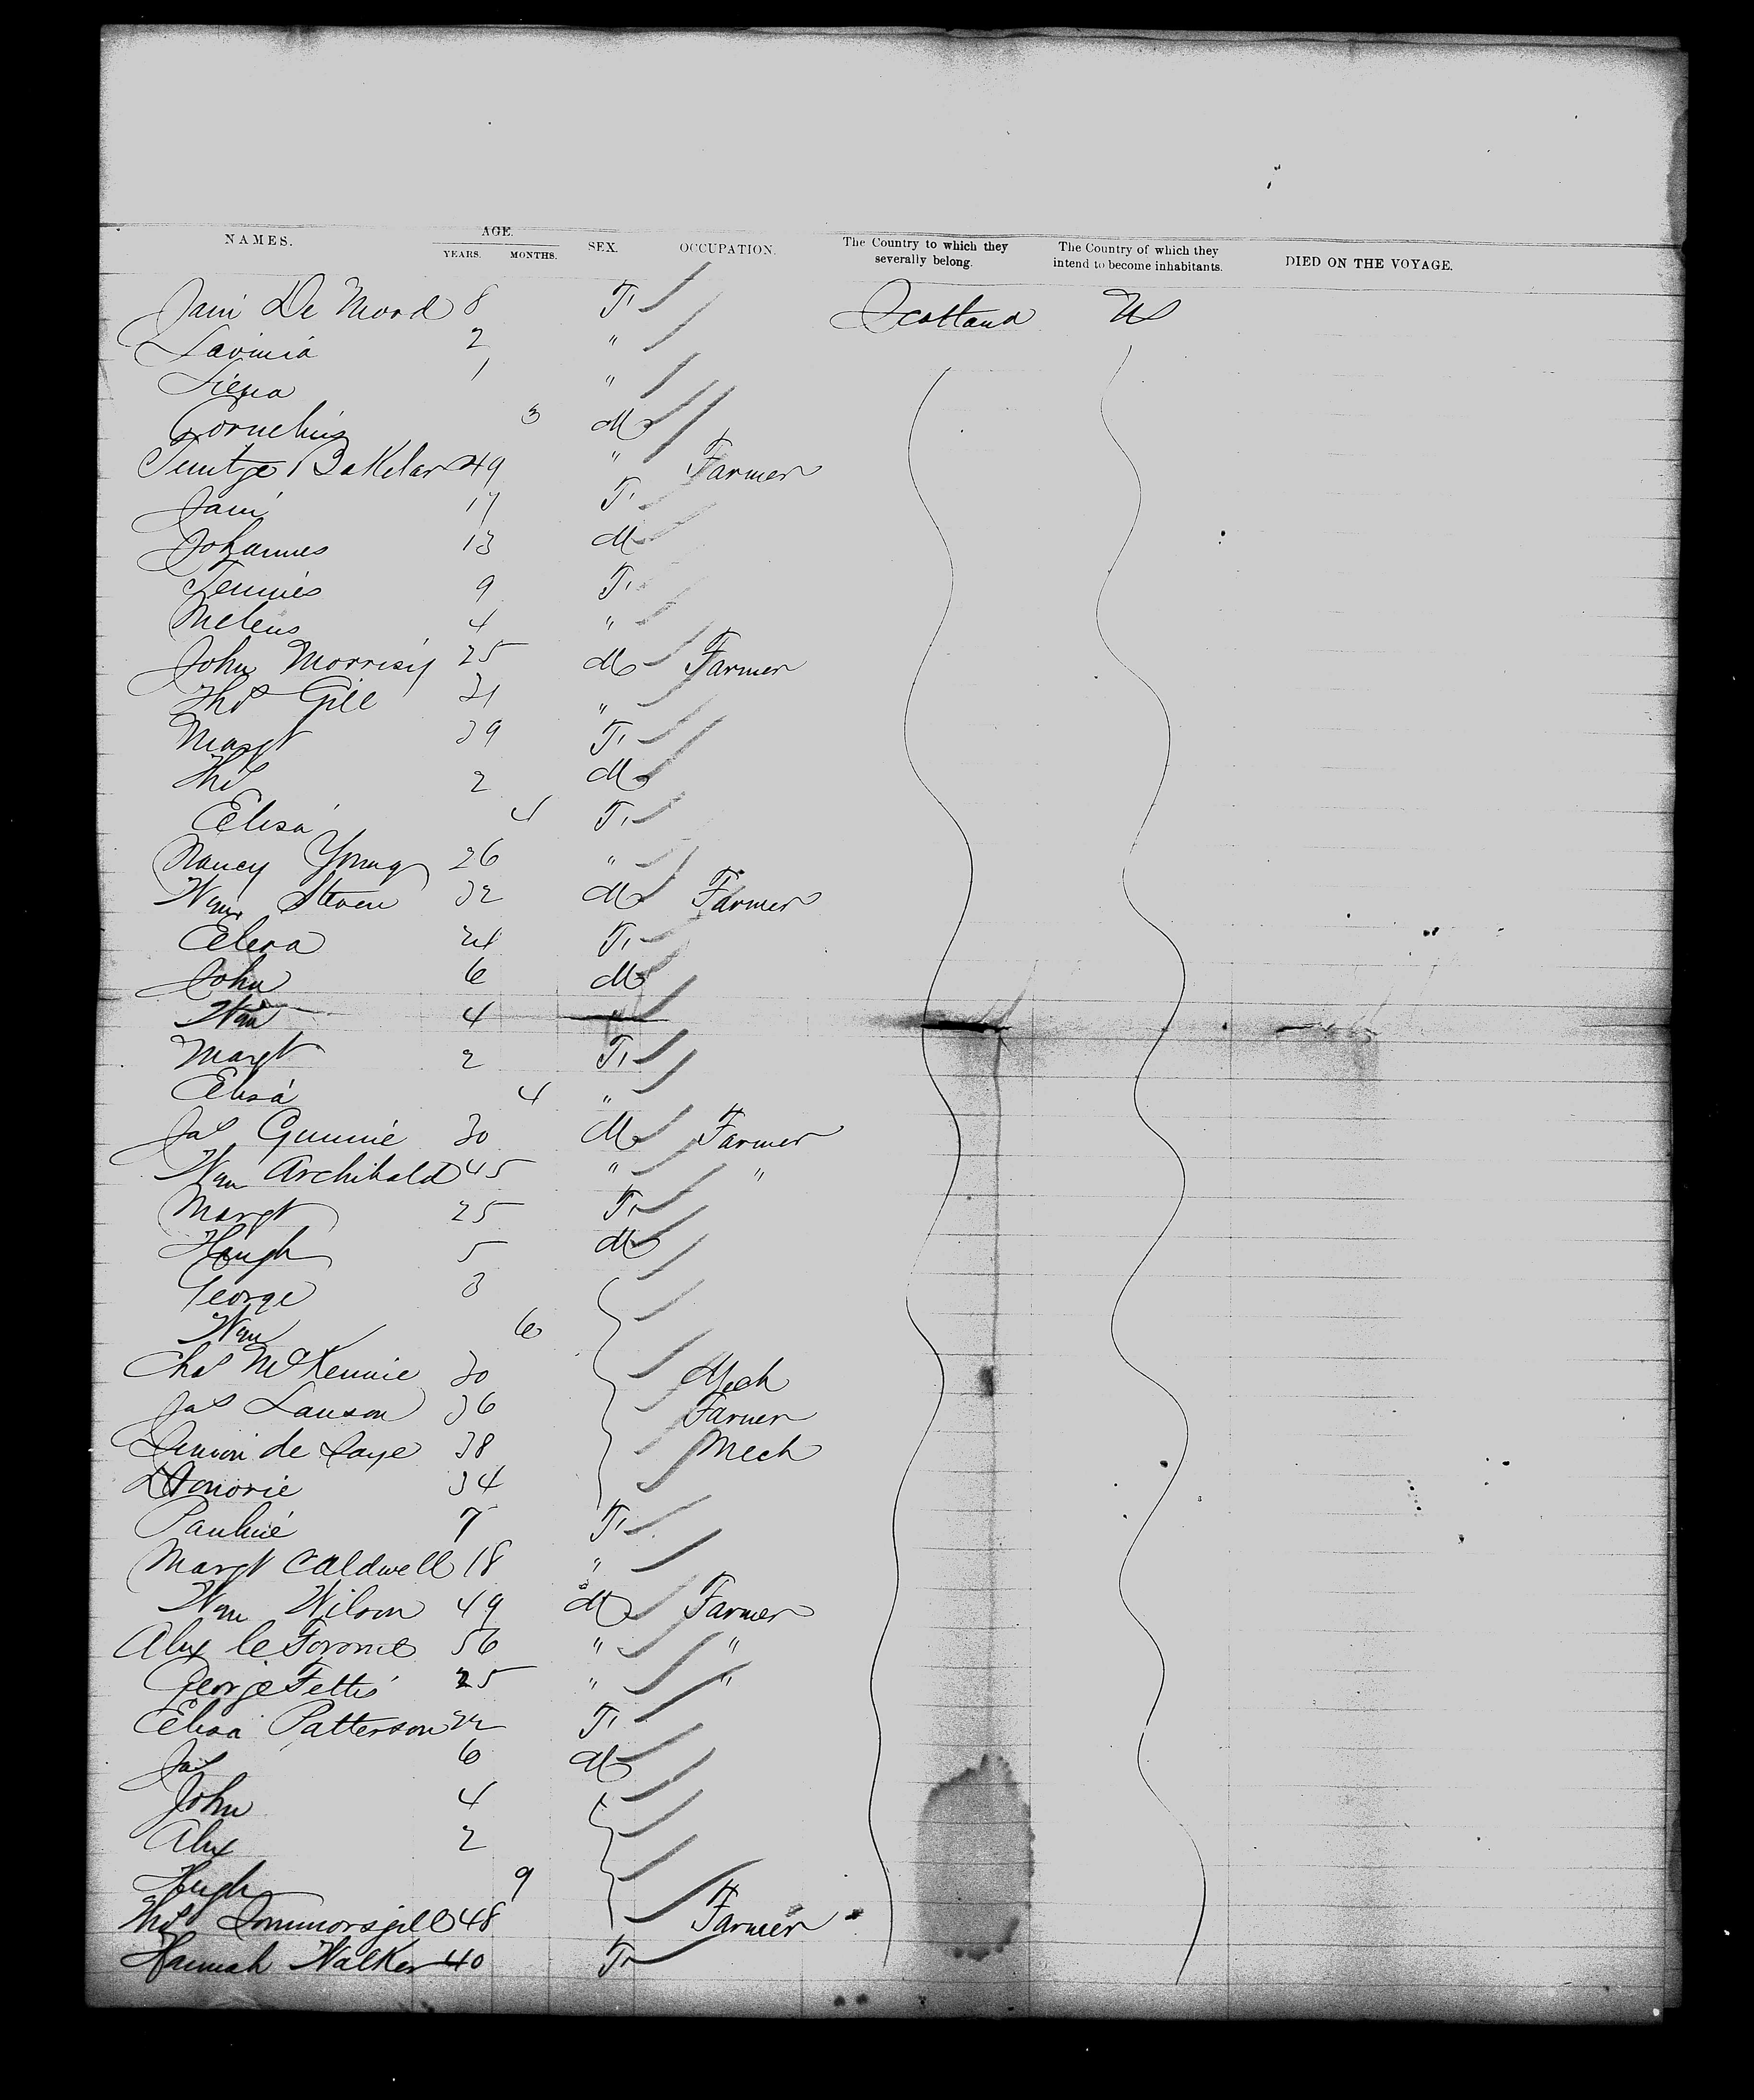 NAMES. AGE. YEARS. MONTHS. SEX. OCCUPATION. The Country to which they severally belong. The Country of which they intend to become inhabitants. DIED ON THE VOYAGE.
Jani De Moord 8 F Scotland US
Lavinia 2 "
Siena 1 "
Cornelius 3 M
Teuntje Bakelar 49 " Farmer
Jani 17 F
Johannes 13 M
Tennies 9 F
Melens 4 "
John Morrisy 25 M Farmer
Thos Gill 31 "
Margt 39 F
Thos 2 M
Elisa 4 F
Nancy Young 26 "
Wm Steven 32 M Farmer
Elena 24 F
John 6 M
Wm 4 "
Margt 2 F
Elisa 4 "
Jas Gunnie 30 M Farmer
Wm Archibald 45 " "
Margt 25 F
Hugh 5 M
George 3
Wm 6
Chas McKennie 30 Mech
Jas Lauson 36 Farmer
de Laye 38 Mech
Honorie 34
Pauline 7 F
Margt Caldwell 18 "
Wm Wilson 49 M Farmer
Alex le 56 " "
George Fettis 25 " "
Elisa Patterson 22 F
Jas 6 M
John 4
Alex 2
Hugh 9
Thos 48 Farmer
Hannah Walker 40 F